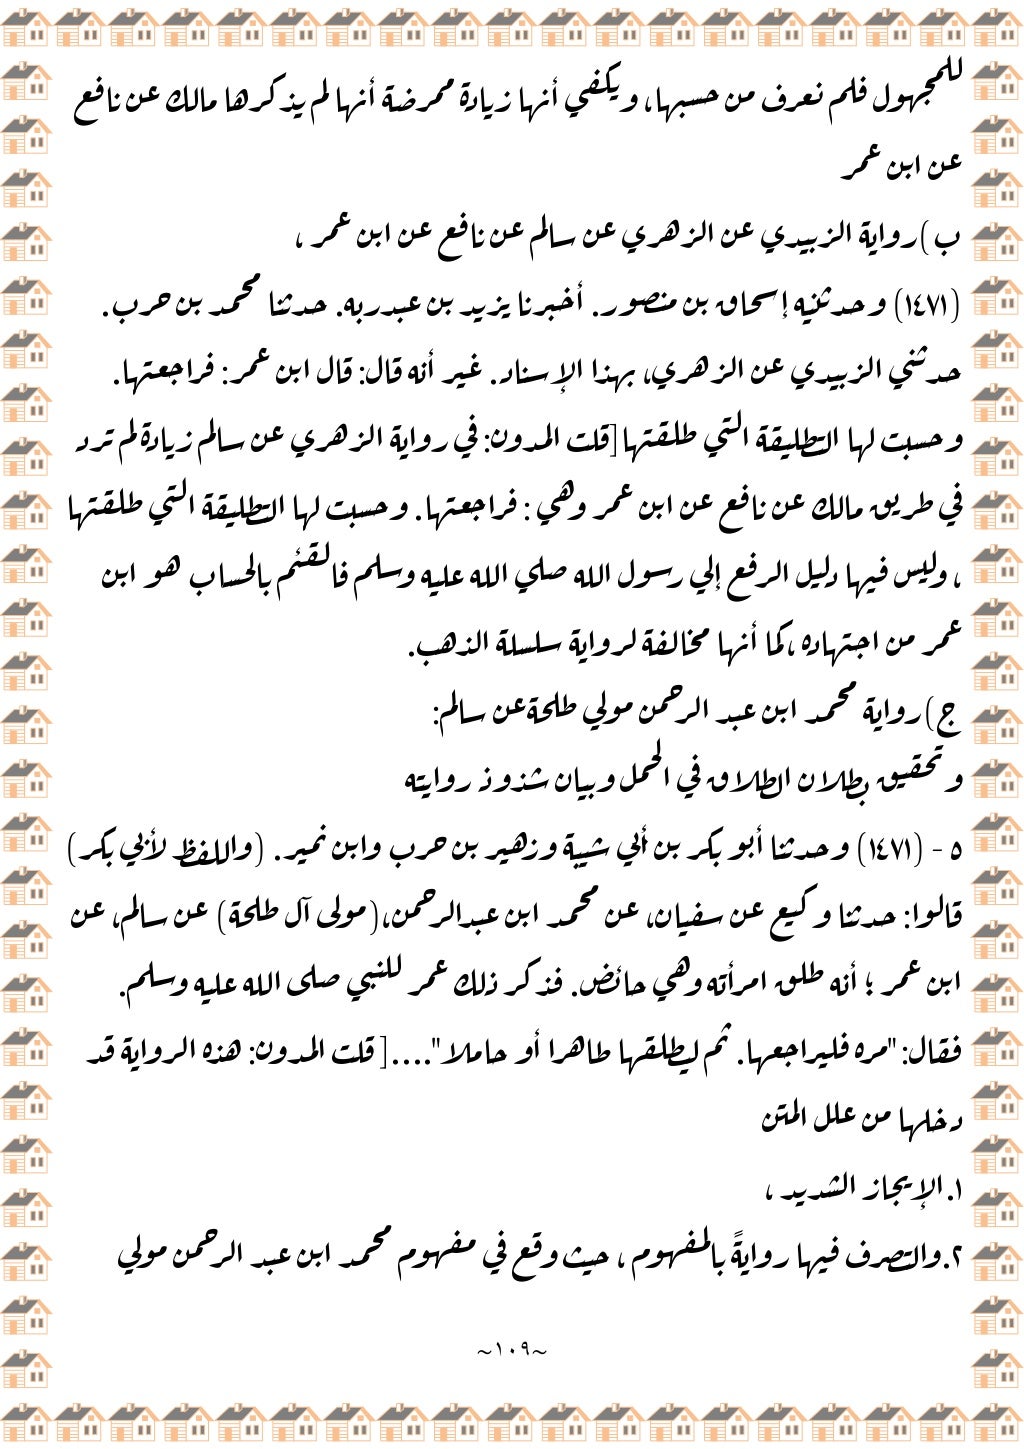 للمجهول فلم نعرف من حسبها، ويكفي أنها زيادة ممرضة أنها لم يذكرها مالك عن نافع
عن ابن عمر
ب )رواية الزبيدي عن الزهري عن سالم عن نافع عن ابن عمر ،
(١٤٧١) وحدثنيه إسحاق بن منصور. أخبرنا يزيد بن عبدربه. حدثنا محمد بن حرب.
حدثني الزبيدي عن الزهري، بهذا الإسناد. غير أنه قال: قال ابن عمر: فراجعتها.
وحسبت لها التطليقة التي طلقتها[قلت المدون: في رواية الزهري عن سالم زيادة لم ترد
في طريق مالك عن نافع عن ابن عمر وهي : فراجعتها. وحسبت لها التطليقة التي طلقتها
، وليس فيها دليل الرفع إلي رسول الله صلي الله عليه وسلم فالقئم بالحساب هو ابن
عمر من اجتهاده ،كما أنها مخالفة لرواية سلسلة الذهب.
ج)رواية محمد ابن عبد الرحمن مولي طلحةعن سالم:
وتحقيق بطلان الطلاق في الحمل وبيان شذوذ روايته
٥ - (١٤٧١) وحدثنا أبو بكر بن أبي شيبة وزهير بن حرب وابن نمير. (واللفظ لأبي بكر)
قالوا: حدثنا وكيع عن سفيان، عن محمد ابن عبدالرحمن،(مولى آل طلحة) عن سالم، عن
ابن عمر ؛ أنه طلق امرأته وهي حائض. فذكر ذلك عمر للنبي صلى الله عليه وسلم.
فقال: "مره فليراجعها. ثم ليطلقها طاهرا أو حاملا"....[ قلت المدون: هذه الرواية قد
دخلها من علل المتن
١.الإيجاز الشديد ،
٢.والتصرف فيها روايةً بالمفهوم ، حيث وقع في مفهوم محمد ابن عبد الرحمن مولي
~١٠٩~